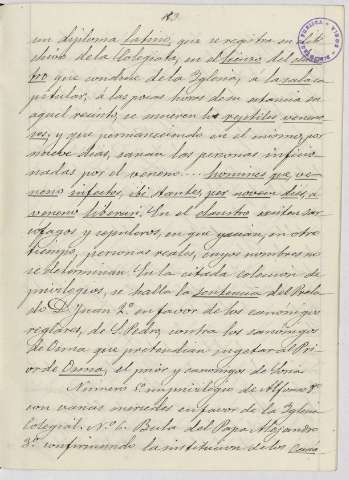 83.
un diploma latino, que se registra en el Ar-
chivo de la Colegiata, en el lienzo del claus-
tro que conduce de la Iglesia, á la sala ca-
pitular, á las pocas horas de su estancia en
aquel recinto, se mueren los reptiles veneno-
sos, y que permaneciendo en el mismo, por
nueve dias, sanan las personas inficio-
nadas por el veneno... homines que, ve-
neno infectos, ibi stantes, per novem dies, a
veneno liberan. En el claustro existen sar-
cofagos y sepulcros, en que yacian, en otro
tiempo, personas reales, cuyos nombres no
se determinan. En la citada coleccion de
privilegios, se halla la sentencia del Rela-
do D. Juan 2º en favor de los canonigos
reglares, de S. Pedro, contra los canonigos
de Osma que pretendian sugetar al Pri-
or de Osma, el prior y canonigos de Soria
Número 5º un privilegio de Alfonso 8º
con varias mercedes en favor de la Iglesia
Colegial. Nº 6. Bula del Papa Alejandro
3º confirmando la institucion de los